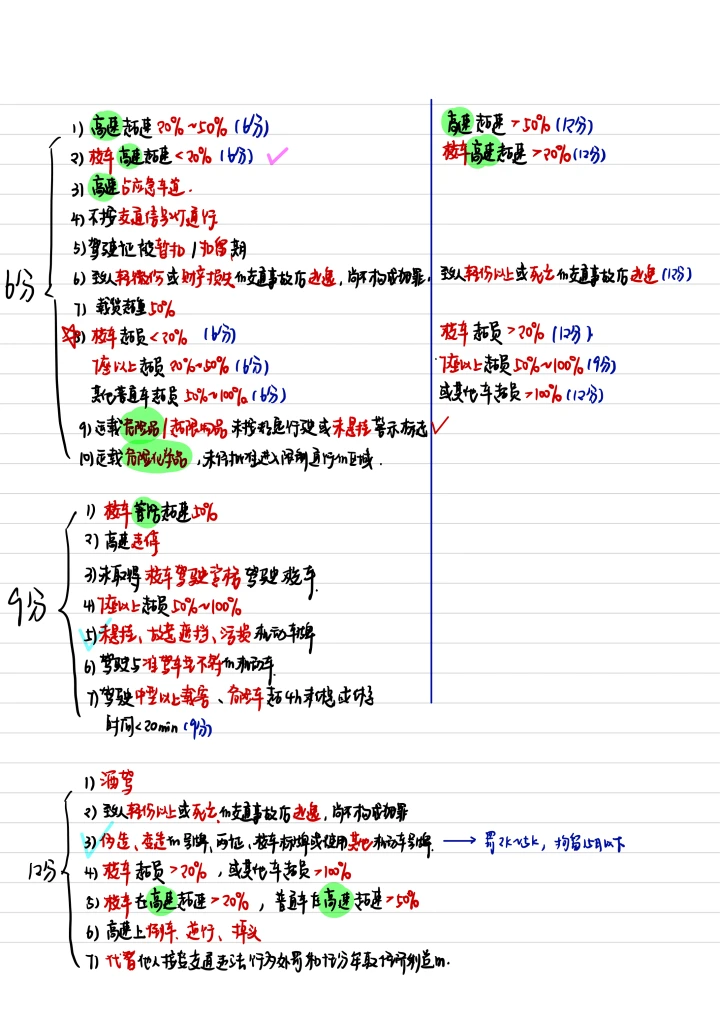 1) 高速超速 20%~50% (6分)
高速超速 > 50% (12分)
2) 校车高速超速 < 20% (6分)
校车高速超速 > 20% (12分)
3) 高速占应急车道.
4) 不按交通信号灯通行
5) 驾驶证被暂扣 / 扣留期
6分
6) 致人轻微伤或财产损失的交通事故后逃逸, 尚不构成犯罪.
致人轻伤以上或死亡的交通事故后逃逸 (12分)
7) 载货超重 50%
8) 校车超员 < 20% (6分)
校车超员 > 20% (12分)
7座以上超员 20%~50% (6分)
7座以上超员 50%~100% (9分)
其他普通车超员 50%~100% (6分)
或其他车超员 > 100% (12分)
9) 运载危险品 / 超限物品 未按规定行驶或未悬挂警示标志
10) 运载危险化学品, 未经批准进入限制通行的区域.
1) 校车普路超速 50%
2) 高速违停
3) 未取得校车驾驶资格驾驶校车.
9分
4) 7座以上超员 50%~100%
5) 未悬挂、故意遮挡、污损机动车牌
6) 驾驶与准驾车型不符的机动车.
7) 驾驶中型以上载客、危险车超4h未休息或休息
时间 < 20min (9分)
1) 酒驾
2) 致人轻伤以上或死亡的交通事故后逃逸, 尚不构成犯罪
3) 伪造、变造的号牌、两证、校车标牌或使用其他机动车号牌. → 罚2k~5k, 拘留15日以下
12分
4) 校车超员 > 20%, 或其他车超员 > 100%
5) 校车在高速超速 > 20%, 普通车在高速超速 > 50%
6) 高速上倒车、逆行、掉头
7) 代替他人接受交通违法行为处罚和记分牟取经济利益的.